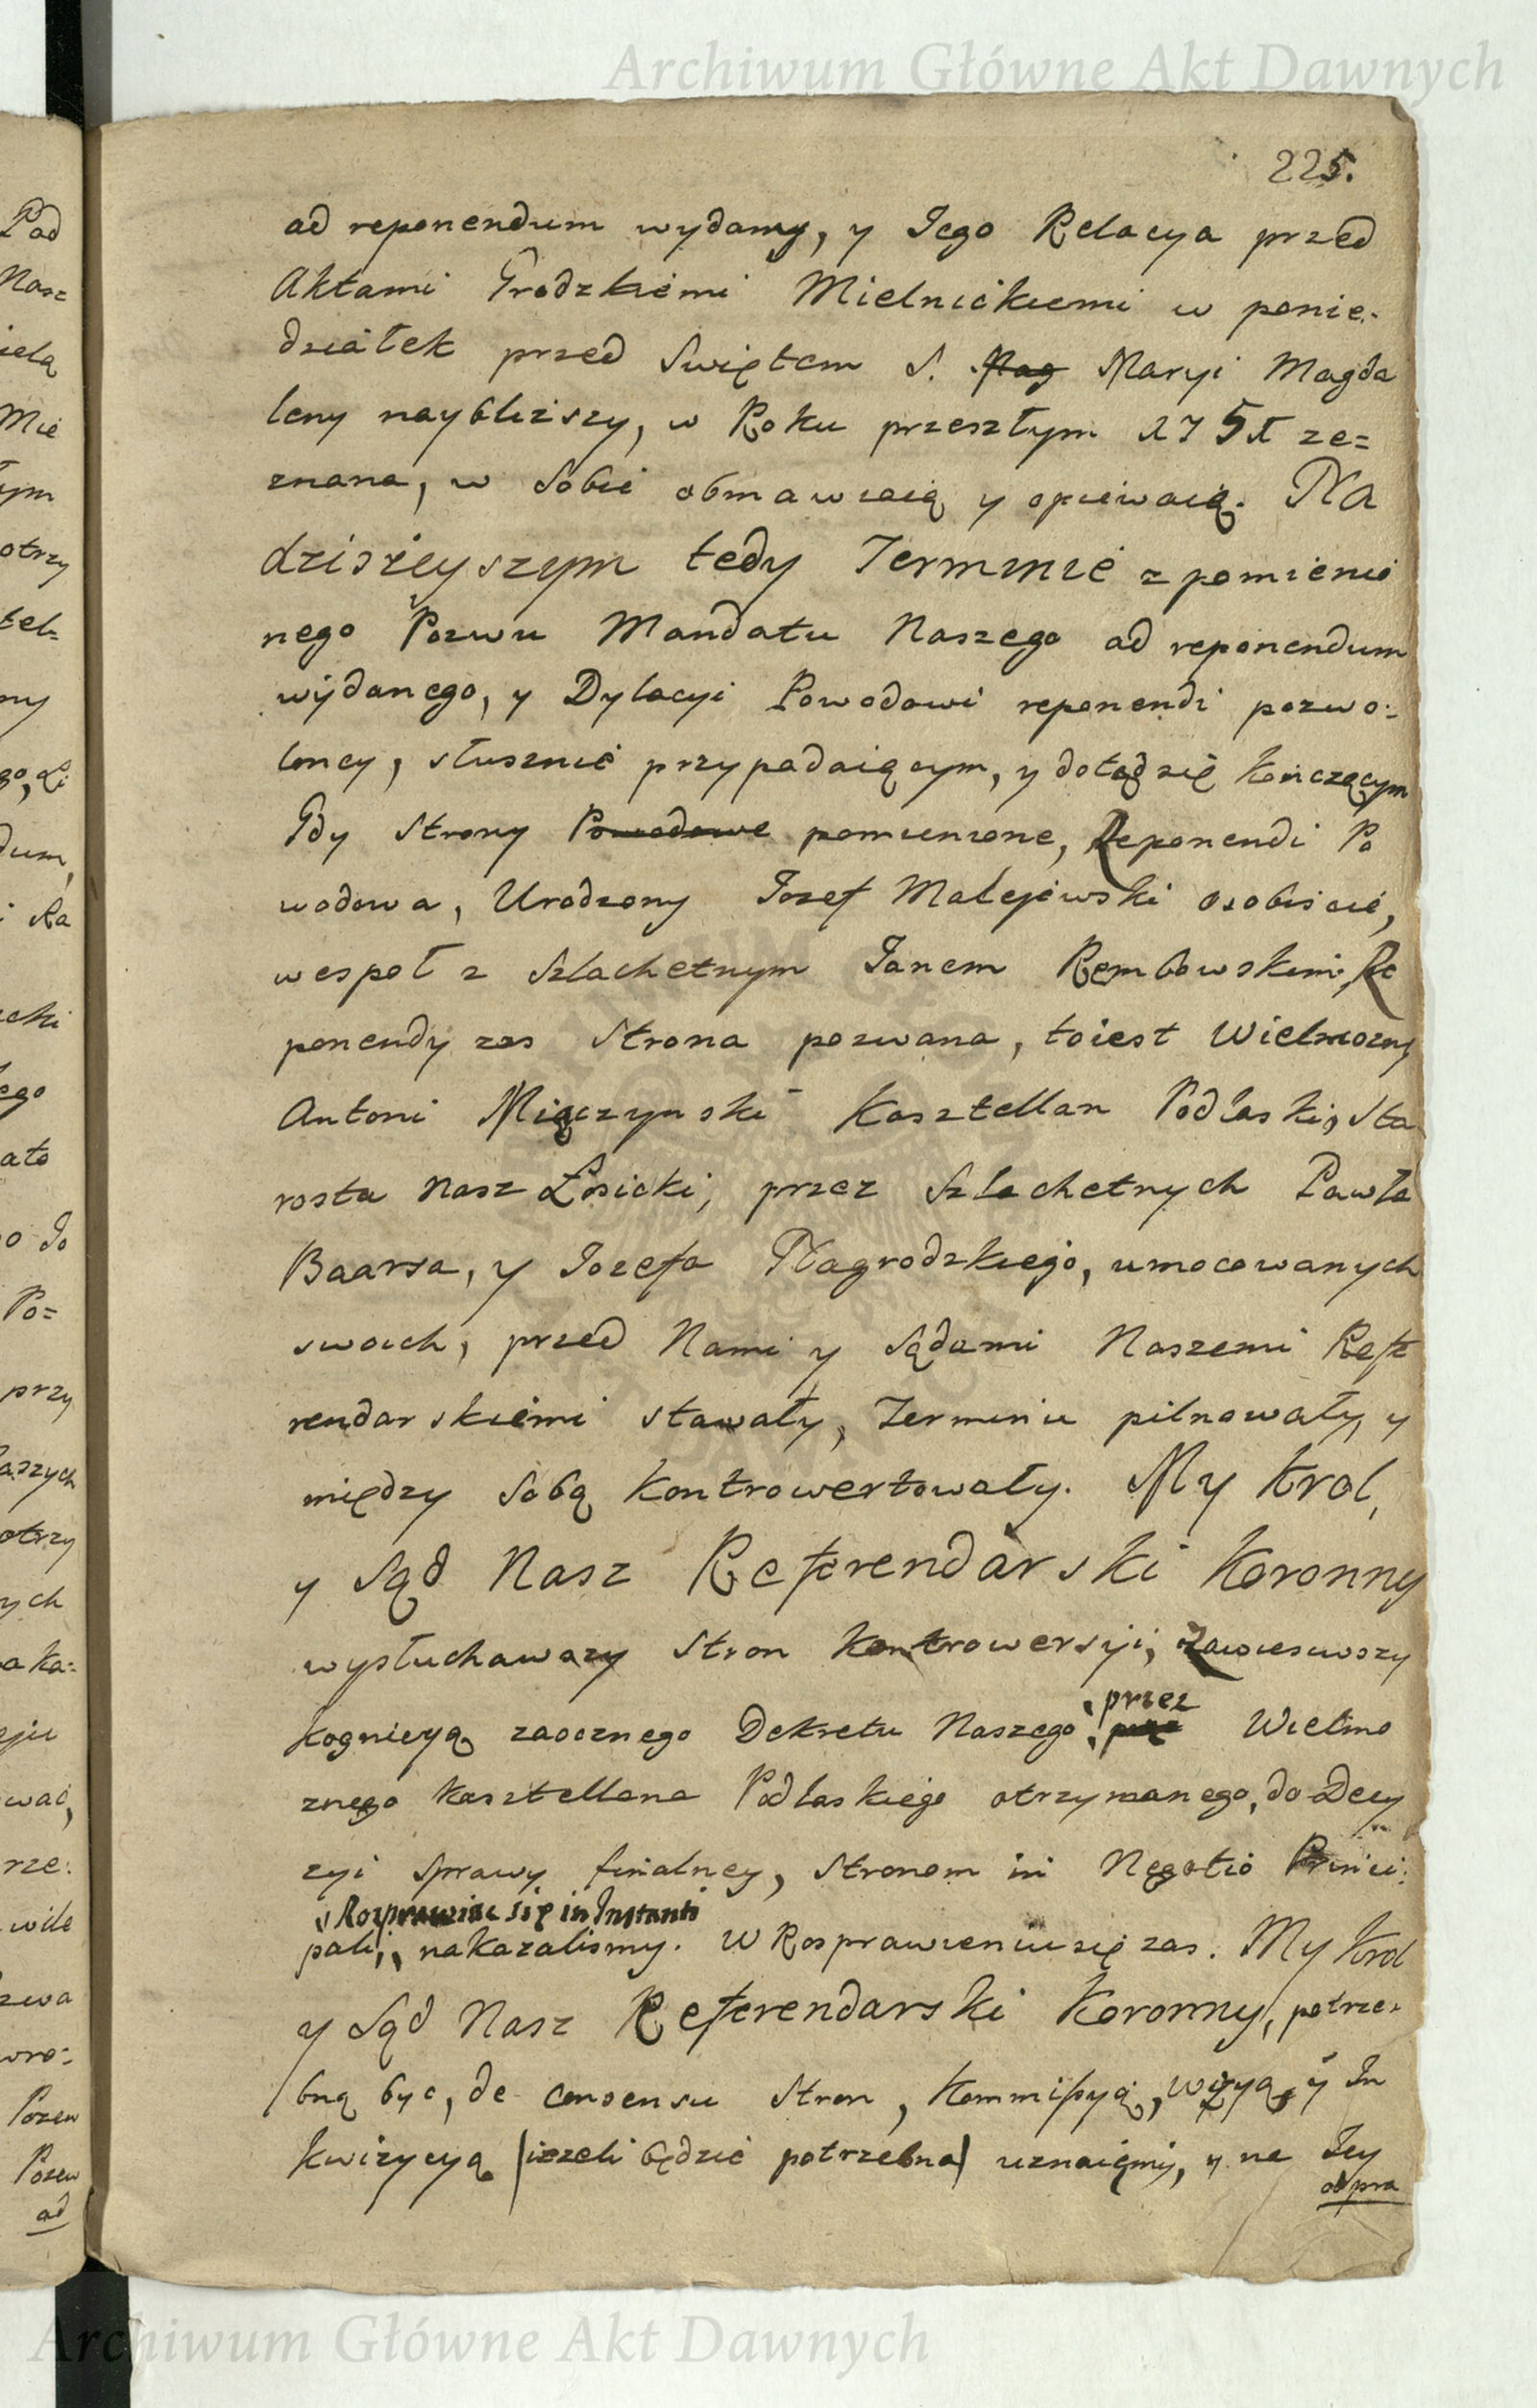 Archiwum Główne Akt Dawnych
225.
ad reponendum wydany, y Jego Relacya przed
Aktami Grodzkiemi Mielnickiemi w ponie-
działek przed Swiętem S. Mag Maryi Magda
leny naybliższy, w Roku przeszłym 1751 ze=
znana, w Sobie obmawiaią y opiewaią. Na
dzisieyszym tedy Terminie z pomienio
nego Pozwu Mandatu Naszego ad reponendum
wydanego, y Dylacyi Powodowi reponendi pozwo-
loney, słusznie przypadaiącym, y dotąd się kończącym
Gdy Strony Powodowe pomienione, Reponendi Po
wodowa, Urodzony Jozef Malejewski osobiscie,
wespoł z Szlachetnym Janem Rembowskim, Re
ponendy zas Strona pozwana, toiest Wielmozny
Antoni Miączynski Kasztellan Podlaski, Sta
rosta Nasz Łosicki, przez Szlachetnych Pawła
Baarsa, y Jozefa Nagrodzkiego, umocowanych
swoich, przed Nami y Sądami Naszemi Refe
rendarskiemi stawały, Terminu pilnowały, y
między Sobą kontrowertowały. My Krol,
y Sąd Nasz Referendarski Koronny
wysłuchawszy Stron kontrowersyi, Zawiesiwszy
kognicyą zaocznego Dekretu Naszego, przez
Wielmo
znego Kasztellana Podlaskiego otrzymanego, do Decy
zyi sprawy finalney, Stronom in Negotio Princi-
Rozprawiac się in Instanti
pali, nakazalismy. W Rosprawieniu się zas. My Krol
y Sąd Nasz Referendarski Koronny, potrze-
bną byc, de consensu Stron, Kommissyą, wizyą, y In
kwizycyą (iezeli będzie potrzebna) uznaiemy, y na Jey
odpra
Archiwum Główne Akt Dawnych